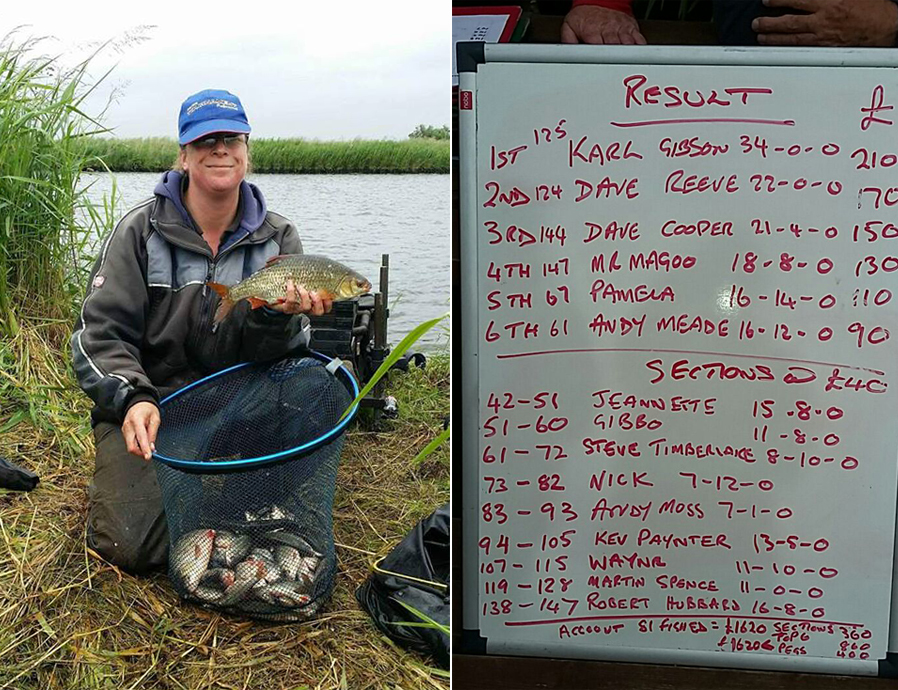 RESULT £
1ST 125 KARL GIBSON 34-0-0 210
2ND 124 DAVE REEVE 22-0-0 170
3RD 144 DAVE COOPER 21-4-0 150
4TH 147 MR MAGOO 18-8-0 130
5TH 67 PAMELA 16-14-0 110
6TH 61 ANDY MEADE 16-12-0 90
SECTIONS @ £40
42-51 JEANNETTE 15-8-0
51-60 GIBBO 11-8-0
61-72 STEVE TIMBERLAKE 8-10-0
73-82 NICK 7-12-0
83-93 ANDY MOSS 7-1-0
94-105 KEV PAYNTER 13-8-0
107-115 WAYNR 11-10-0
119-128 MARTIN SPENCE 11-0-0
138-147 ROBERT HUBBARD 16-8-0
ACCOUNT 81 FISHED = £1620 SECTIONS 360
TOP 6 860
£1620 PEGS 400